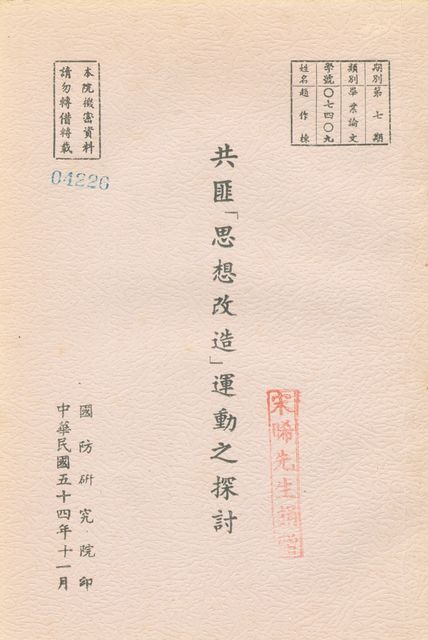 期別第七期
類別學業論文
學號〇七四〇九
姓名趙作棟
共匪「思想改造」運動之探討
宋晞先生捐贈
本院機密資料
請勿轉借轉載
04226
國防研究院印
中華民國五十四年十一月